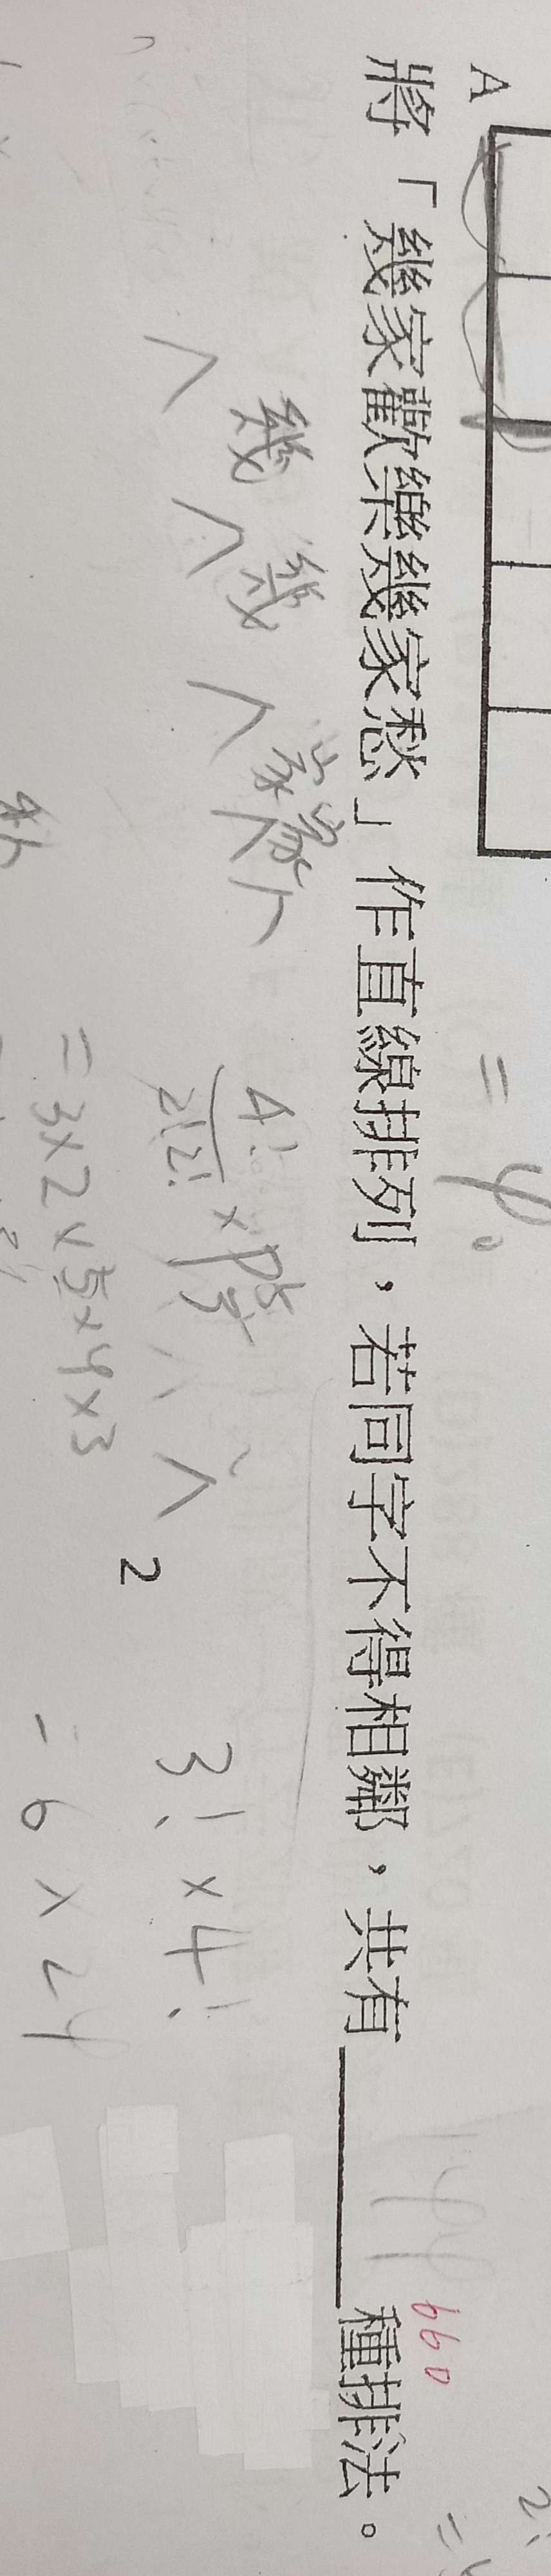 A
= 4。
將「幾家歡樂幾家愁」作直線排列，若同字不得相鄰，共有______種排法。
660
幾 幾 家 家
4!/2!2! × P⁵₃
= 3×2×5×4×3
2
3! × 4!
= 6 × 24